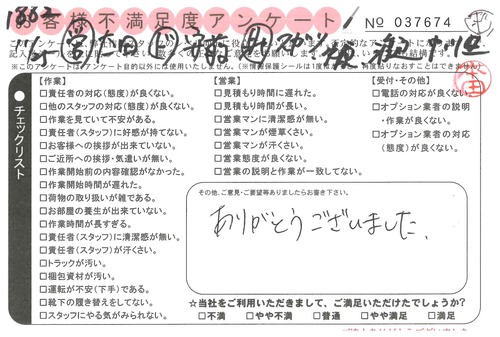 1882
お客様不満足度アンケート
No 037674
チェックリスト
【作業】
□責任者の対応(態度)が良くない。
□他のスタッフの対応(態度)が良くない。
□作業を見ていて不安がある。
□責任者(スタッフ)に好感が持てない。
□お客様への挨拶が出来ていない。
□ご近所への挨拶・気遣いが無い。
□作業開始前の内容確認がなかった。
□作業開始時間が遅れた。
□荷物の取り扱いが雑である。
□お部屋の養生が出来ていない。
□作業時間が長すぎる。
□責任者(スタッフ)に清潔感が無い。
□責任者(スタッフ)が汗くさい。
□トラックが汚い。
□梱包資材が汚い。
□運転が不安(下手)である。
□靴下の履き替えをしてない。
□スタッフにやる気がみられない。
【営業】
□見積もり時間に遅れた。
□見積もり時間が長い。
□営業マンに清潔感が無い。
□営業マンが煙草くさい。
□営業マンが汗くさい。
□営業態度が良くない。
□営業の説明と作業が一致してない。
【受付・その他】
□電話の対応が良くない。
□オプション業者の説明
・作業が良くない。
□オプション業者の対応
(態度)が良くない。
その他、ご意見・ご要望等ありましたらお書き下さい。
ありがとうございました。
☆当社をご利用いただきまして、ご満足いただけたでしょうか?
□不満 □やや不満 □普通 □やや満足 □満足